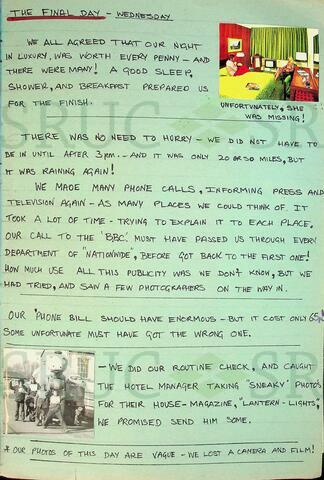 THE FINAL DAY - WEDNESDAY
WE ALL AGREED THAT OUR NIGHT
IN LUXURY, WAS WORTH EVERY PENNY - AND
THERE WERE MANY! A GOOD SLEEP,
SHOWER, AND BREAKFAST PREPARED US
FOR THE FINISH.
UNFORTUNATELY, SHE
WAS MISSING!
THERE WAS NO NEED TO HURRY - WE DID NOT HAVE TO
BE IN UNTIL AFTER 3pm. - AND IT WAS ONLY 20 OR 30 MILES, BUT
IT WAS RAINING AGAIN!
WE MADE MANY PHONE CALLS, INFORMING PRESS AND
TELEVISION AGAIN - AS MANY PLACES WE COULD THINK OF. IT
TOOK A LOT OF TIME - TRYING TO EXPLAIN IT TO EACH PLACE.
OUR CALL TO THE 'BBC' MUST HAVE PASSED US THROUGH EVERY
DEPARTMENT OF "NATIONWIDE", BEFORE GOT BACK TO THE FIRST ONE!
HOW MUCH USE ALL THIS PUBLICITY WAS WE DON'T KNOW, BUT WE
HAD TRIED, AND SAW A FEW PHOTOGRAPHERS ON THE WAY IN.
OUR 'PHONE BILL SHOULD HAVE ENORMOUS - BUT IT COST ONLY 65p
SOME UNFORTUNATE MUST HAVE GOT THE WRONG ONE.
- WE DID OUR ROUTINE CHECK, AND CAUGHT
THE HOTEL MANAGER TAKING "SNEAKY" PHOTO'S
FOR THEIR HOUSE-MAGAZINE, "LANTERN-LIGHTS",
WE PROMISED SEND HIM SOME.
* OUR PHOTOS OF THIS DAY ARE VAGUE - WE LOST A CAMERA AND FILM!
SRUC SRUC
SRUC SRUC